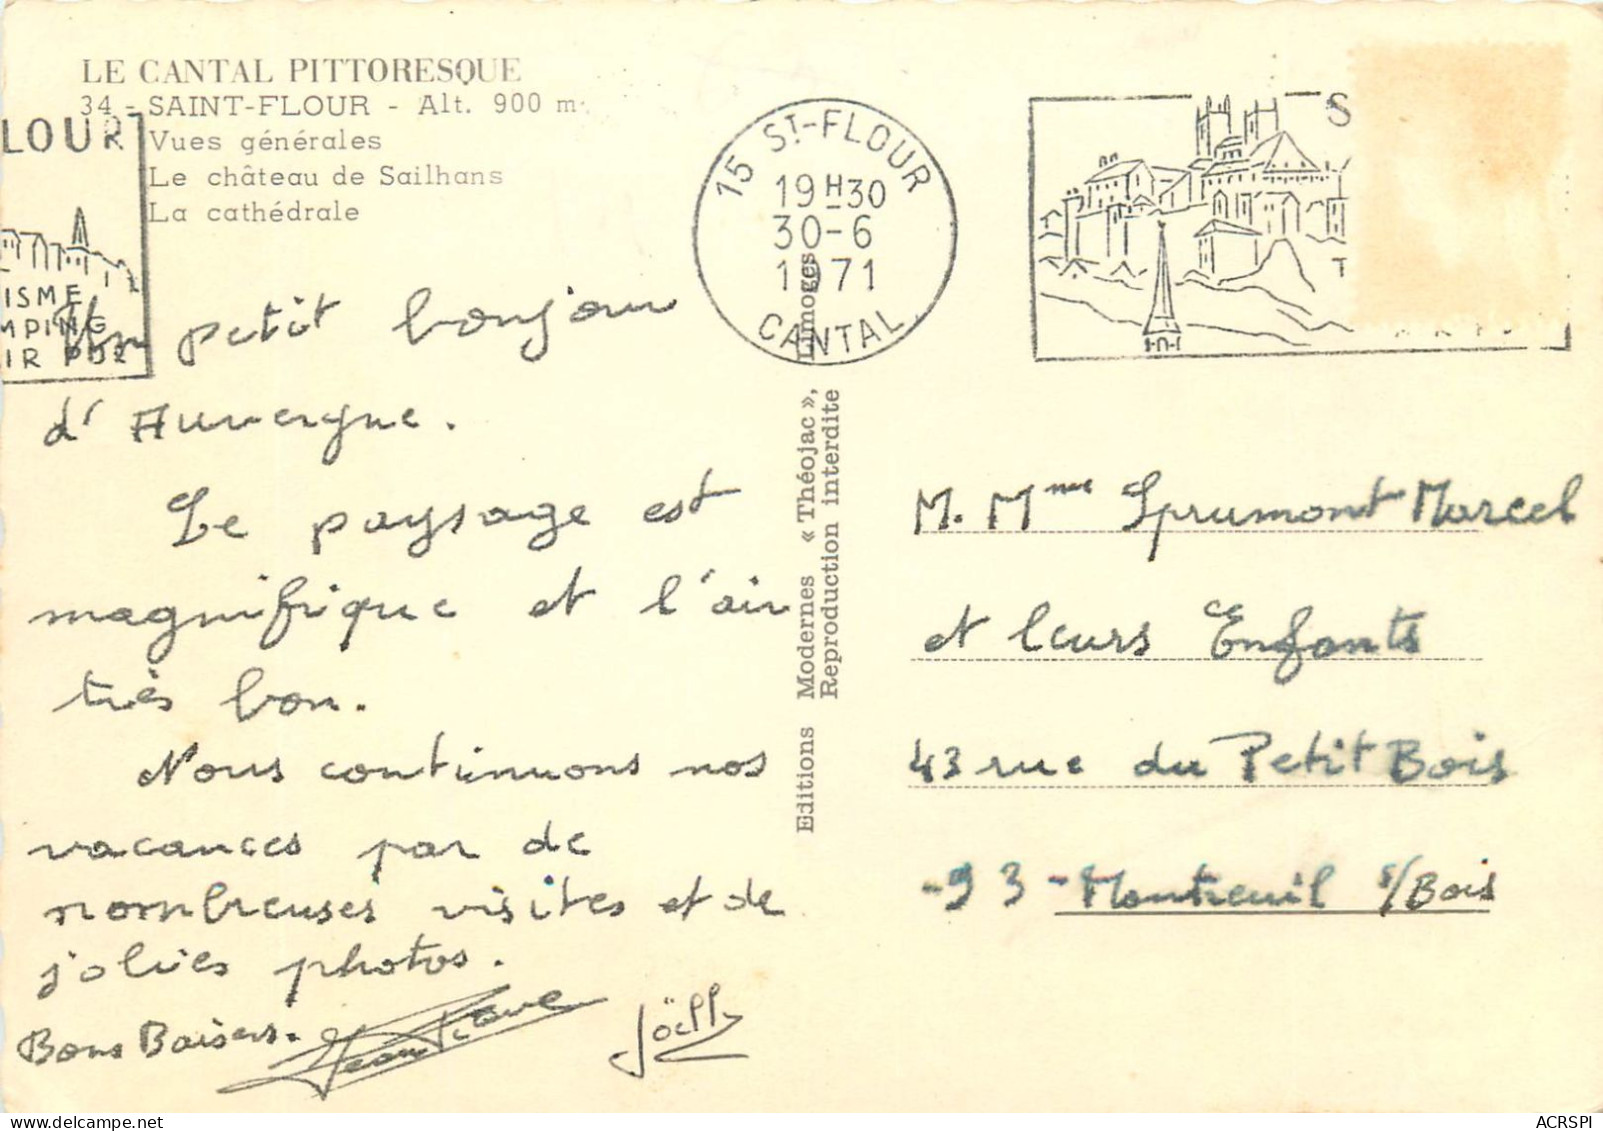 LE CANTAL PITTORESQUE
34 - SAINT-FLOUR - Alt. 900 m.
Vues générales
Le château de Sailhans
La cathédrale
LOUR
ISME
MPING
IR PUR
15 ST-FLOUR
19H30
30-6
1971
CANTAL
S
T
Un petit bonjour
d'Auvergne.
Le paysage est
magnifique et l'air
très bon.
Nous continuons nos
vacances par de
nombreuses visites et de
jolies photos.
Bons Baisers.
Jean Pierre
Joëlle
Editions Modernes « Théojac », Limoges
Reproduction interdite
M. Mme Sprumont Marcel
et leurs Enfants
43 rue du Petit Bois
-93- Montreuil s/Bois
ACRSPI